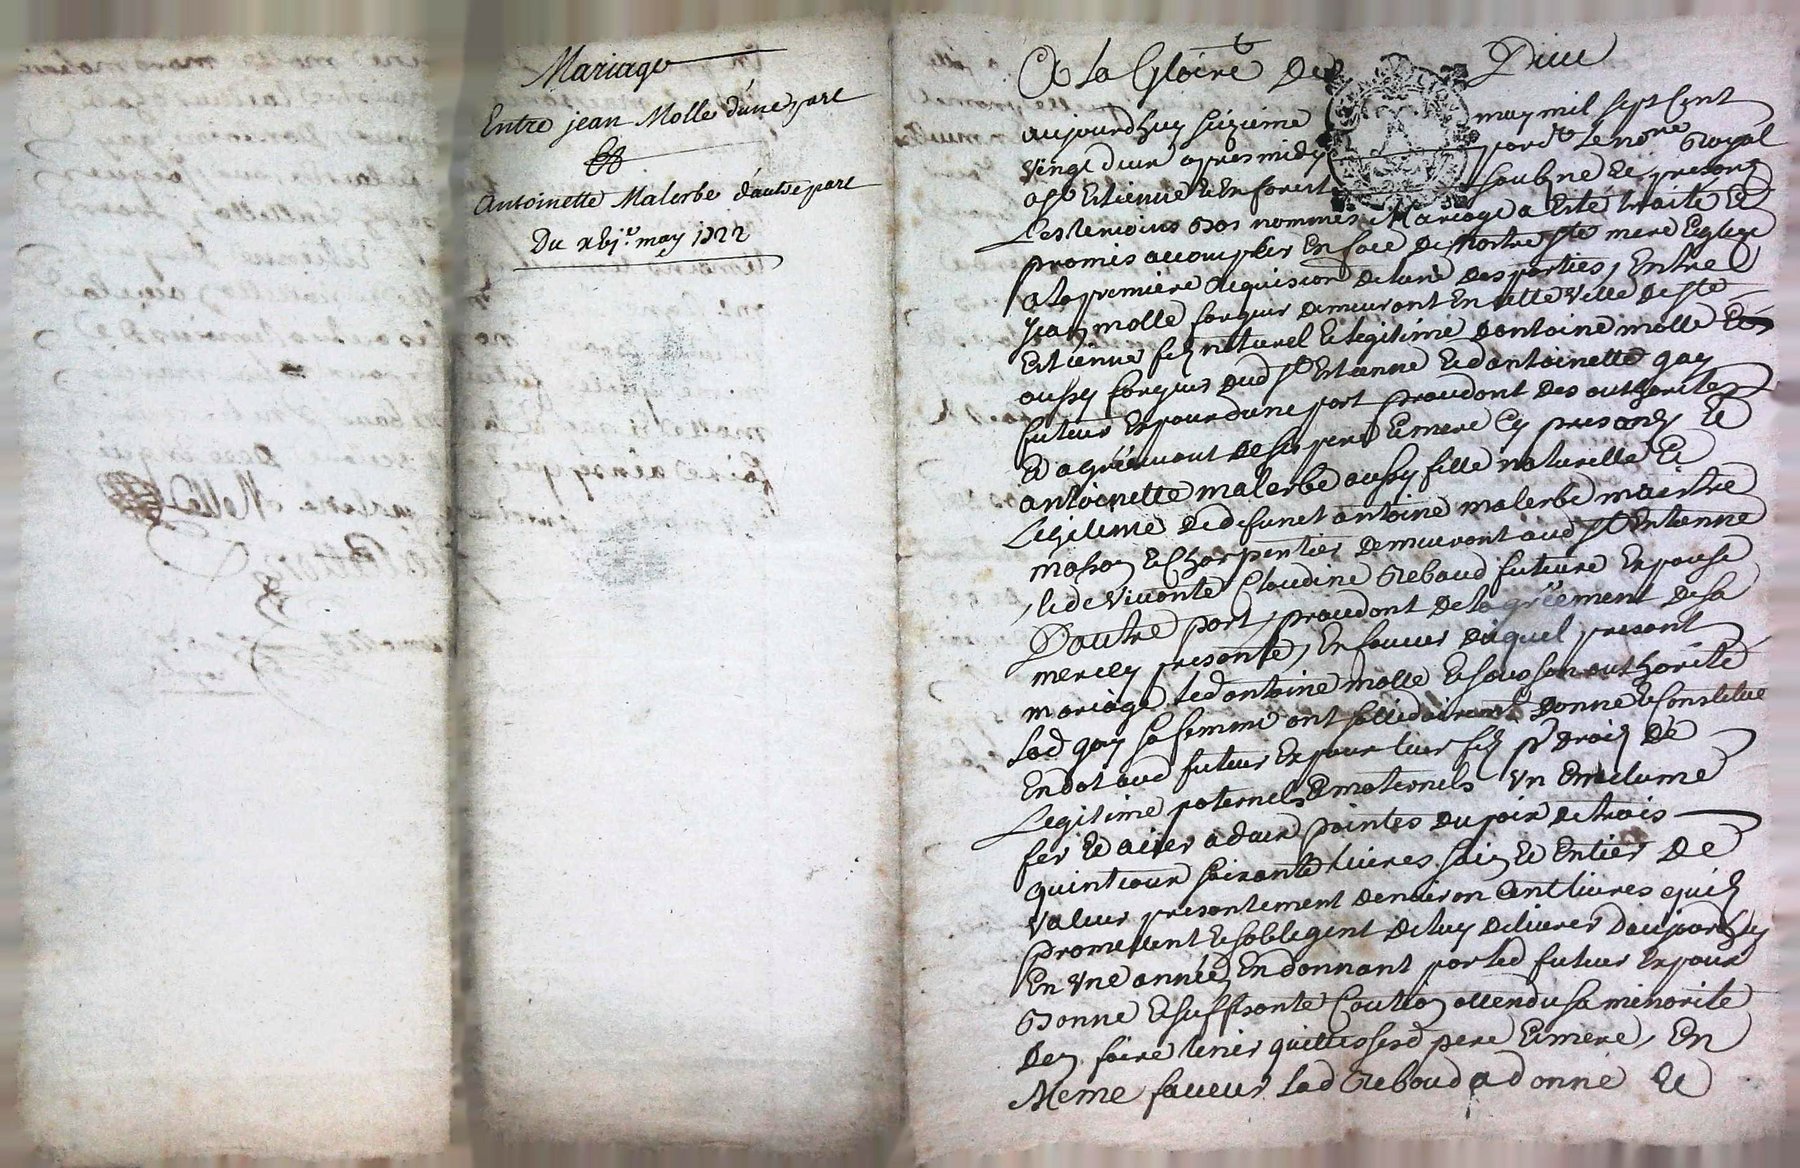 Mariage
Entre jean Molle d'une part
Et
Antoinette Malerbe d'autre part
Du xbje. may 1722
A la Gloire De Dieu
aujourdhuy seizieme may mil sept Cent
vingt deux apres midy pard.t le no.re Royal
a St Estienne Et en forest soubz.né Et presents
Les temoins bas nommés Mariage a Esté traité Et
promis accomplir En face De nostre ste mere Eglize
a la premiere Requision de lune Des parties, Entre
Jean molle forgeur demeurant En cette Ville de St
Estienne filz naturel Et legitime dantoine molle Et
aussy forgeur dud St Estienne Et dantoinette gay
futeur Expoux dune part procedant Des authorités
Et agréemant de ses pere Et mere Cy presants Et
antoinette malerbe aussy fille naturelle Et
Legiteme de defunct antoine malerbe maistre
mason Et Charpentier demeurant aud St Entienne
, Et de vivante Claudine Rebaud futeure Expouse
Dautre part, procedant De lagréement De sa
mere Cy presante, En faveur duquel presant
mariage led antoine molle Et sous son authorité
lad gay sa femme ont sollidairemt Donné Et Constitué
En dot aud futeur Expoux leur filz pr Droitz De
Legitime paternels Et maternels Vn Enclume
fer Et acier a deux pointes du poix de trois
quintaux soixante livres sain Et Entier De
valeur presantement denviron Cent livres quilz
promettent Et soblegent De luy delivrer Daujourdhuy
En vne année, En donnant par led futeur Expoux
Bonne Et suffisante Caution attendu sa minorité
Den faire tenir quittes sesd pere Et mere, En
Meme faveur Lad Reboud a donné Et